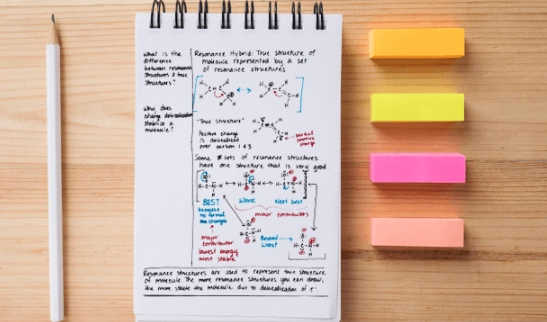 What is the
difference
between resonance
structures & true
structures?
Why does
charge delocalization
stabilize a
molecule?
Resonance Hybrid: True structure of
molecule represented by a set
of resonance structures
"True structure"
Positive charge
is delocalized
over carbon 1 & 3
partial
positive charge
Some sets of resonance structures
have one structure that is very good
BEST
because
no formal
charges
Worse
Next best
minor contributors
major
contributor
lowest energy
most stable
Beyond
worst
Resonance structures are used to represent true structure
of molecule. The more resonance structures you can draw,
the more stable the molecule due to delocalization of e⁻